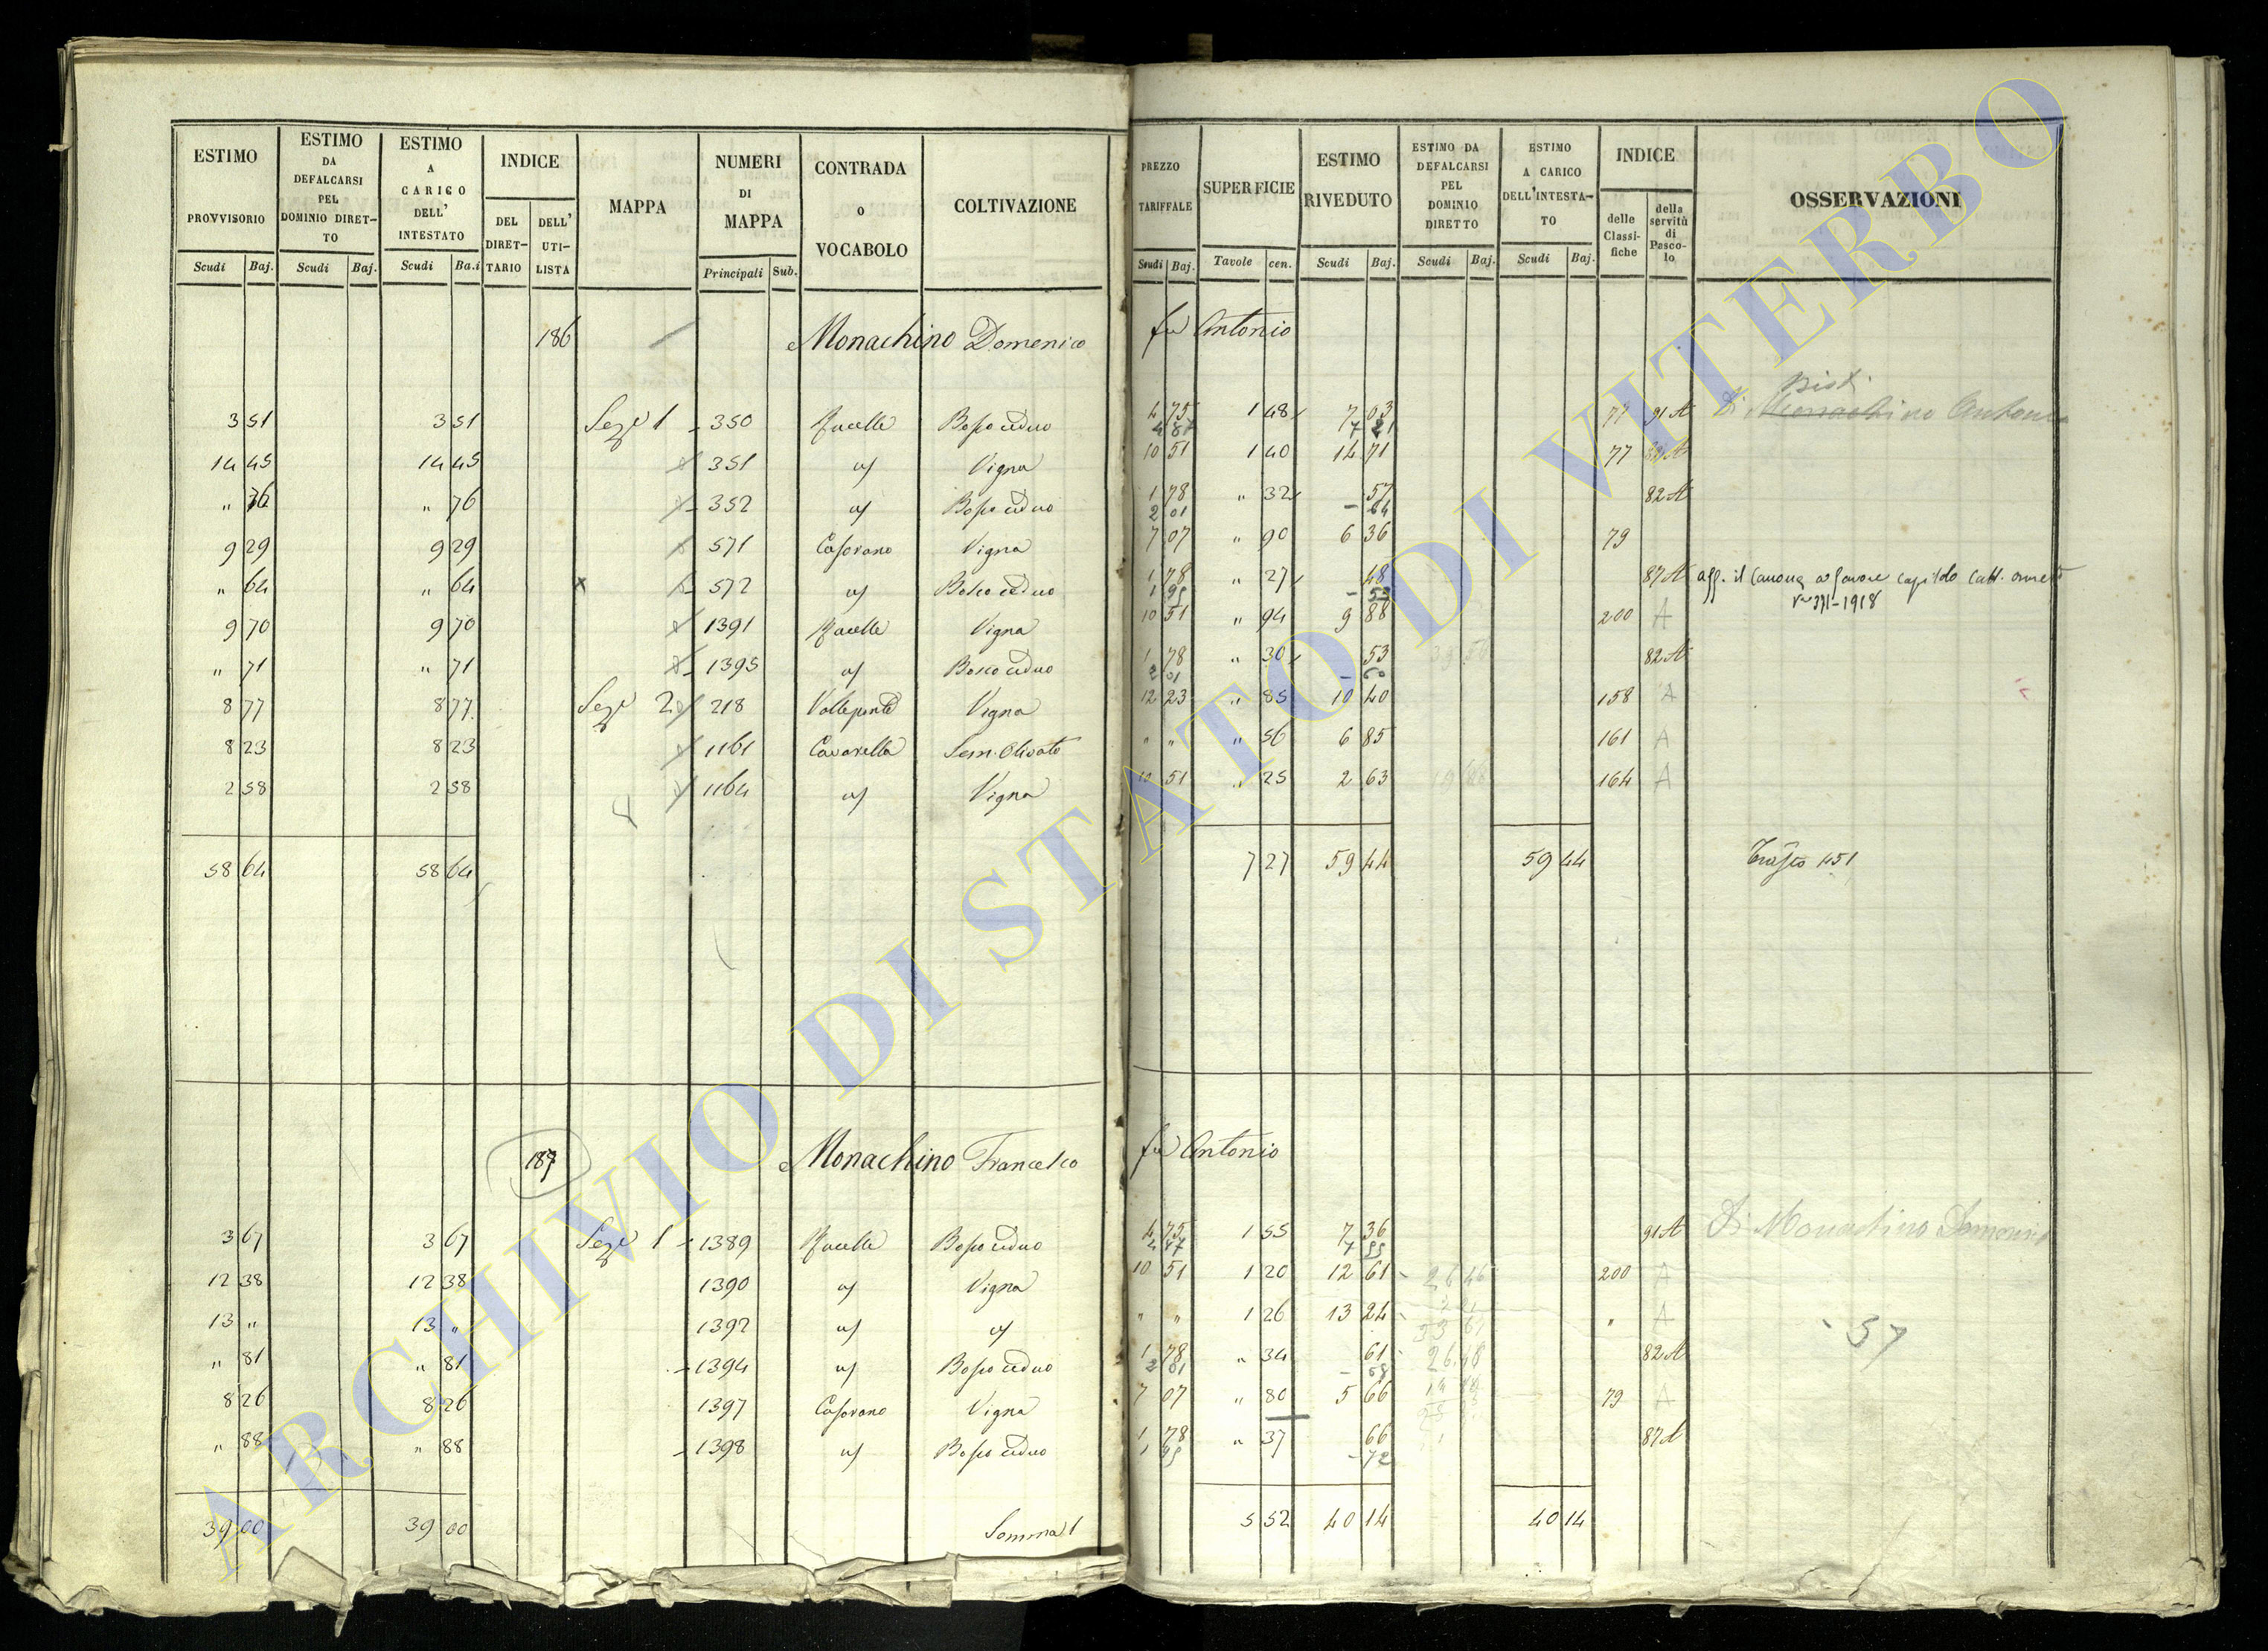 ESTIMO PROVVISORIO Scudi Baj. | ESTIMO DA DEFALCARSI PEL DOMINIO DIRET-TO Scudi Baj. | ESTIMO A CARICO DELL' INTESTATO Scudi Ba.i | INDICE DEL DIRET-TARIO DELL' UTI-LISTA | MAPPA | NUMERI DI MAPPA Principali Sub. | CONTRADA o VOCABOLO | COLTIVAZIONE | PREZZO TARIFFALE Scudi Baj. | SUPERFICIE Tavole cen. | ESTIMO RIVEDUTO Scudi Baj. | ESTIMO DA DEFALCARSI PEL DOMINIO DIRETTO Scudi Baj. | ESTIMO A CARICO DELL'INTESTA-TO Scudi Baj. | INDICE delle Classi-fiche della servitù di Pasco-lo | OSSERVAZIONI
186 Monachino Domenico fu Antonio
3 51 3 51 Sezе 1 350 Bosco ceduo 4 75 1 48 7 03 77 91 A Di Monachino Antonio
7 21
14 45 14 45 351 Vigna 10 51 1 40 14 71 77
" 76 " 76 352 Bosco ceduo 1 78 " 32 57 82 A
2 01 - 64
9 29 9 29 571 Casorano Vigna 7 07 " 90 6 36 79
" 64 " 64 x 572 Bosco ceduo 1 78 " 27 48 87 A aff. il Canone a favore capitolo Catt.
- 53 391-1918
9 70 9 70 1391 Vigna 10 51 " 94 9 88 200 A
" 71 " 71 1395 Bosco ceduo 1 78 " 30 53 82 A
2 01 - 60
8 77 8 77 Sezе 2 218 Vigna 12 23 " 85 10 40 158 A
8 23 8 23 1161 Cavarella Sem. Olivato " " " 56 6 85 161 A
2 58 2 58 1164 Vigna 10 51 " 25 2 63 164 A
58 64 58 64 7 27 59 44 59 44 451
187 Monachino Francesco fu Antonio
3 67 3 67 Sezе 1 1389 Bosco ceduo 4 75 1 55 7 36 91 A Di Monachino Domenico
12 38 12 38 1390 Vigna 10 51 1 20 12 61 200 A
13 " 13 " 1392 " " 1 26 13 24 " A 37
" 81 " 81 1394 Bosco ceduo 1 78 " 34 61 82 A
8 26 8 26 1397 Casorano Vigna 7 07 " 80 5 66 79 A
" 88 " 88 1398 Bosco ceduo 1 78 " 37 66 87 A
- 72
39 00 39 00 Somma 5 52 40 14 40 14
ARCHIVIO DI STATO DI VITERBO